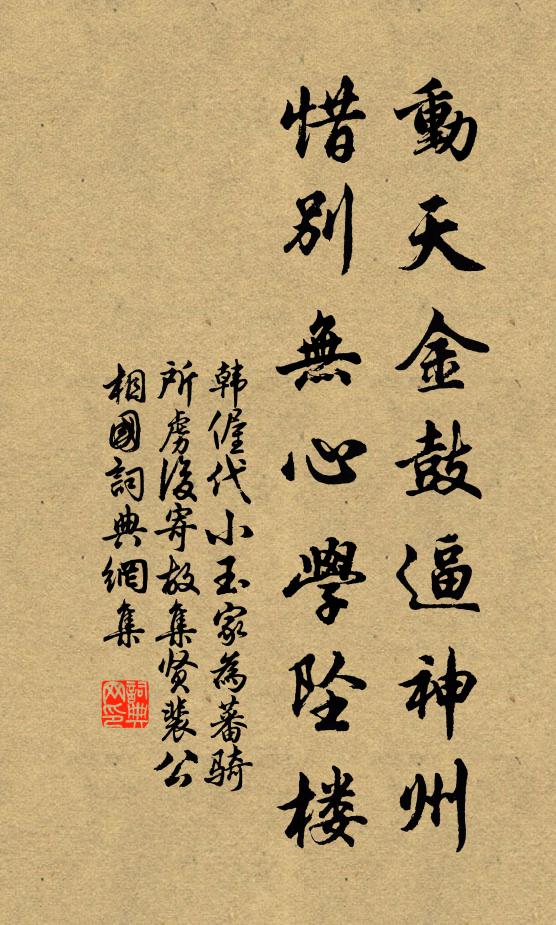 動天金鼓逼神州
惜别無心學坠楼
韩偓代小玉家為蕃騎
所虏後寄故集贤裴公
相國詞典網集
詞典网印